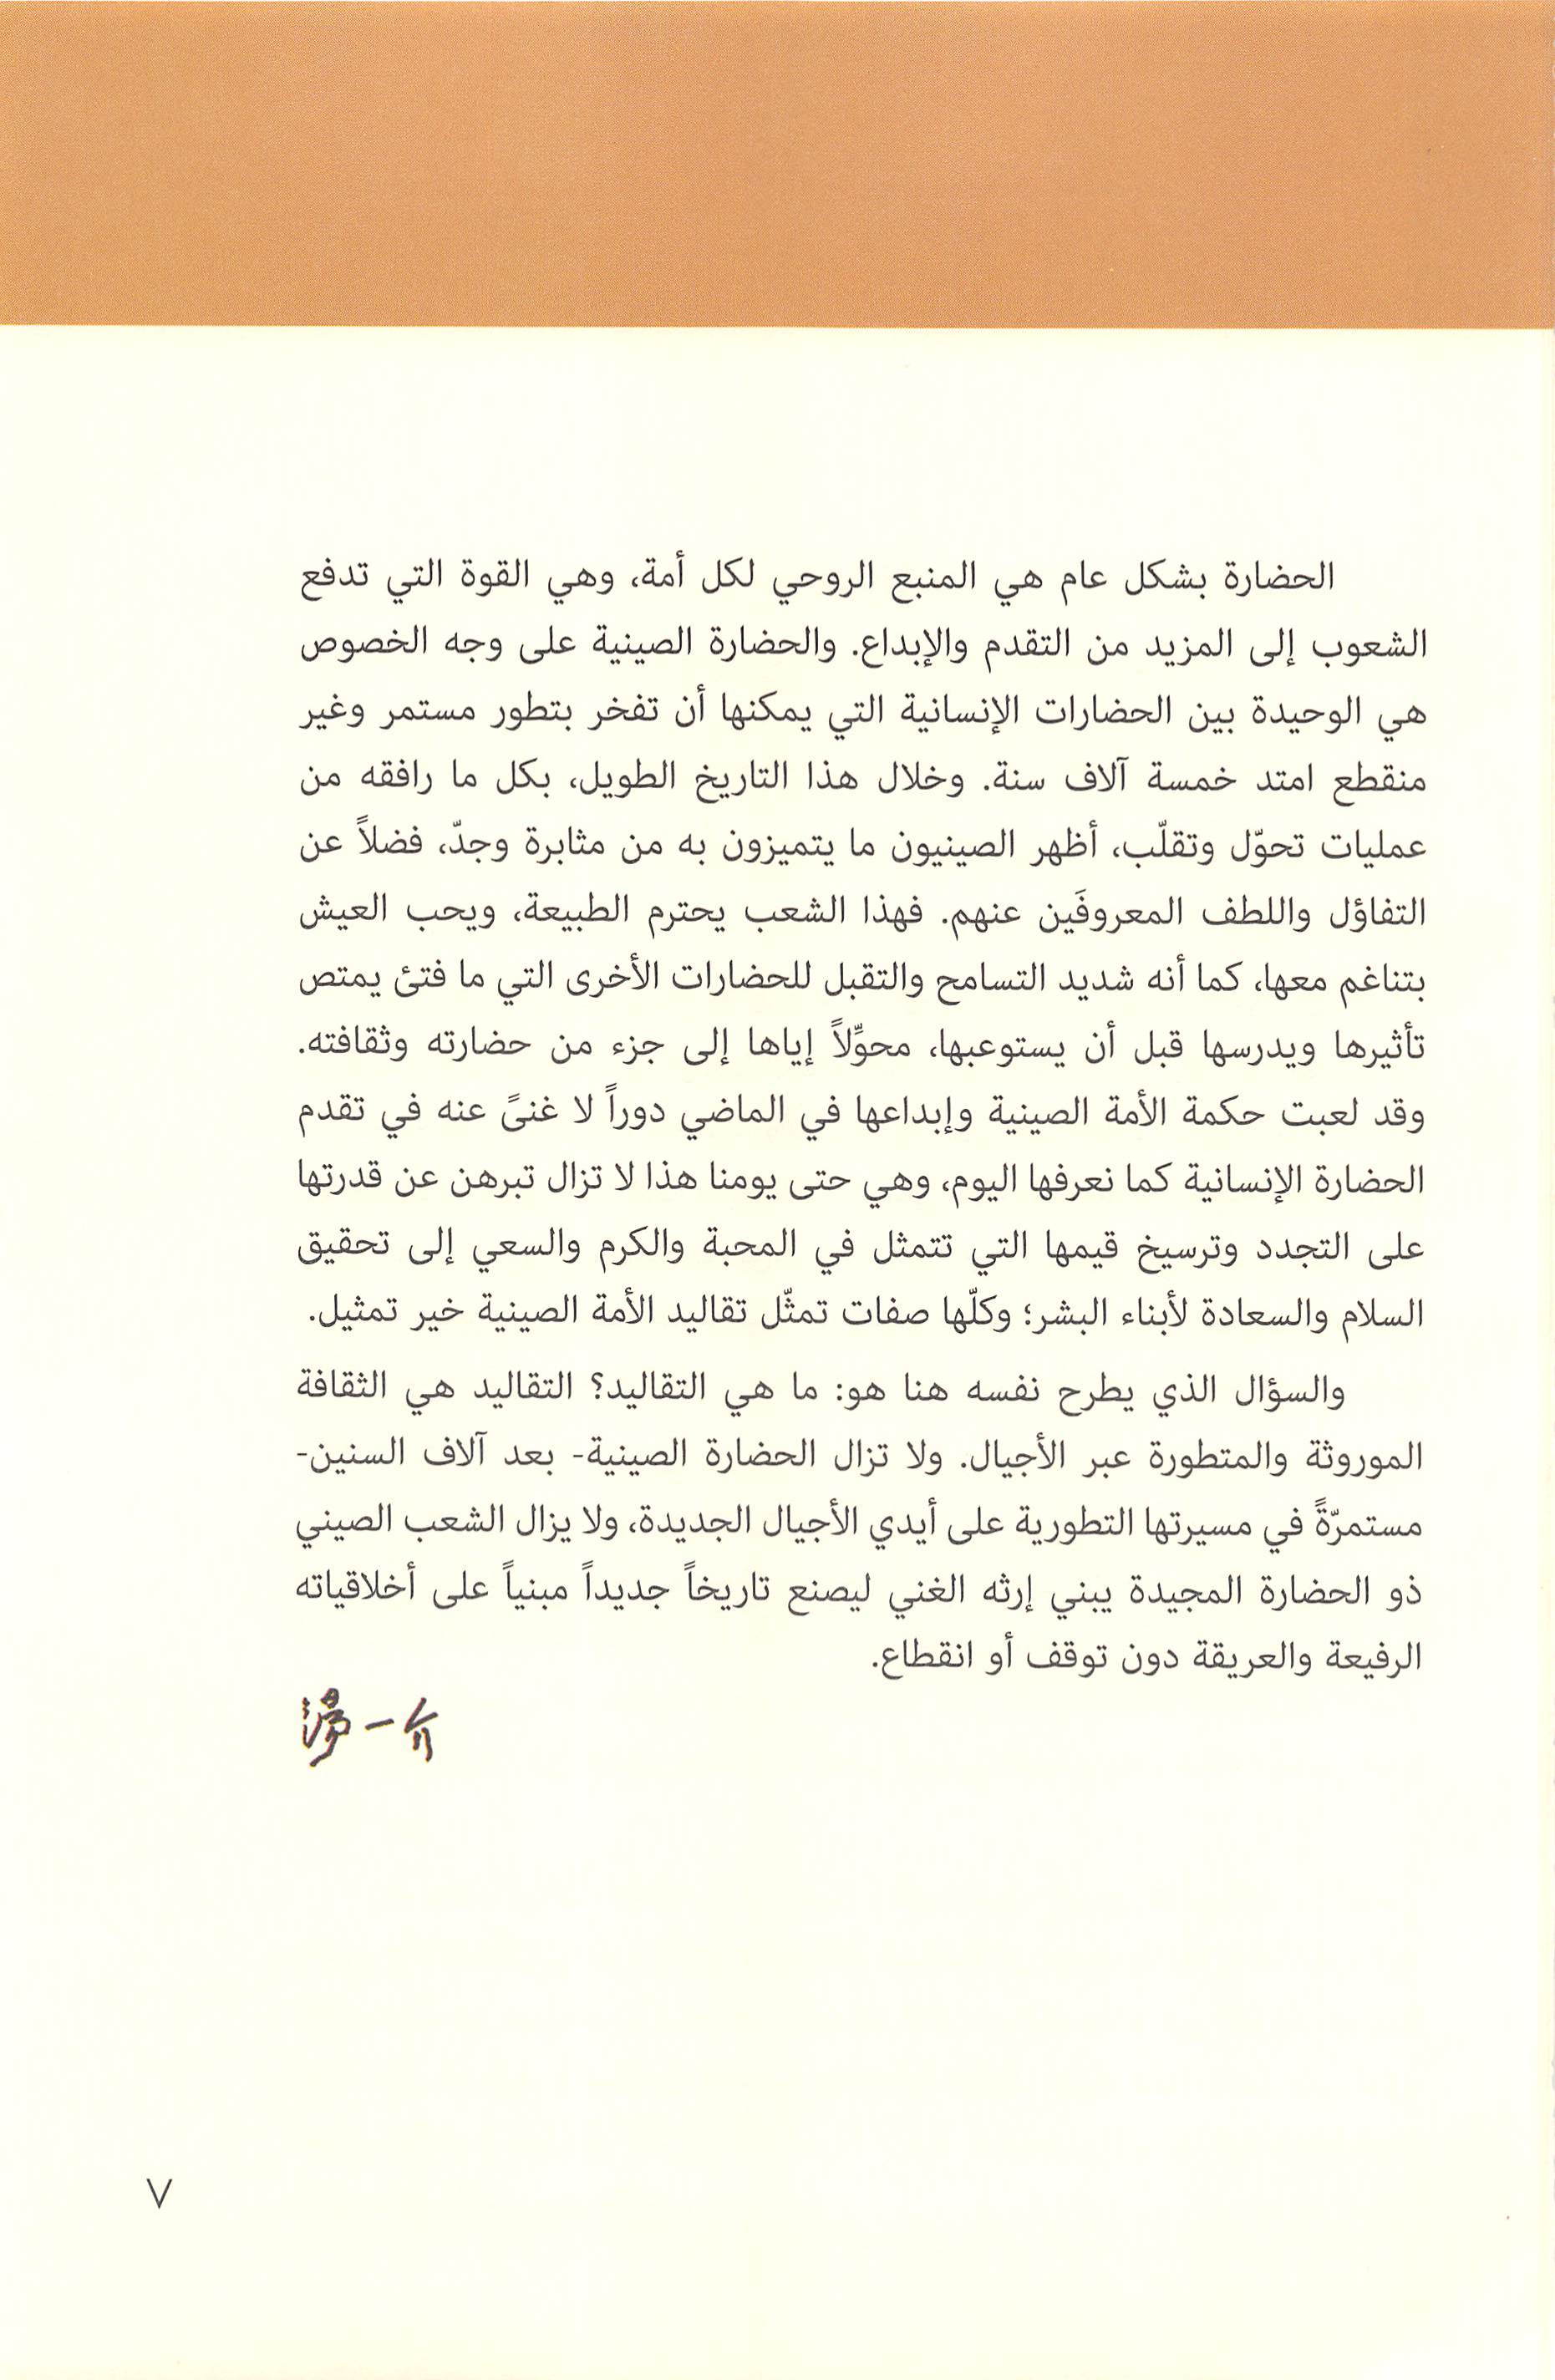 الحضارة بشكل عام هي المنبع الروحي لكل أمة، وهي القوة التي تدفع
الشعوب إلى المزيد من التقدم والإبداع. والحضارة الصينية على وجه الخصوص
هي الوحيدة بين الحضارات الإنسانية التي يمكنها أن تفخر بتطور مستمر وغير
منقطع امتد خمسة آلاف سنة. وخلال هذا التاريخ الطويل، بكل ما رافقه من
عمليات تحوّل وتقلّب، أظهر الصينيون ما يتميزون به من مثابرة وجدّ، فضلاً عن
التفاؤل واللطف المعروفَين عنهم. فهذا الشعب يحترم الطبيعة، ويحب العيش
بتناغم معها، كما أنه شديد التسامح والتقبل للحضارات الأخرى التي ما فتئ يمتص
تأثيرها ويدرسها قبل أن يستوعبها، محوِّلاً إياها إلى جزء من حضارته وثقافته.
وقد لعبت حكمة الأمة الصينية وإبداعها في الماضي دوراً لا غنىً عنه في تقدم
الحضارة الإنسانية كما نعرفها اليوم، وهي حتى يومنا هذا لا تزال تبرهن عن قدرتها
على التجدد وترسيخ قيمها التي تتمثل في المحبة والكرم والسعي إلى تحقيق
السلام والسعادة لأبناء البشر؛ وكلّها صفات تمثّل تقاليد الأمة الصينية خير تمثيل.
والسؤال الذي يطرح نفسه هنا هو: ما هي التقاليد؟ التقاليد هي الثقافة
الموروثة والمتطورة عبر الأجيال. ولا تزال الحضارة الصينية- بعد آلاف السنين-
مستمرّةً في مسيرتها التطورية على أيدي الأجيال الجديدة، ولا يزال الشعب الصيني
ذو الحضارة المجيدة يبني إرثه الغني ليصنع تاريخاً جديداً مبنياً على أخلاقياته
الرفيعة والعريقة دون توقف أو انقطاع.
湯一介
٧